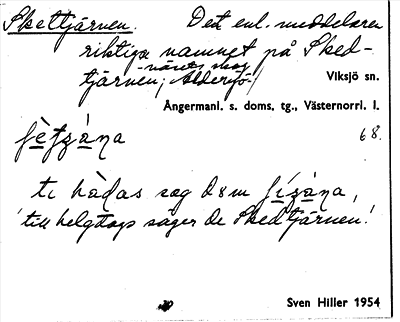 Skettjärnen. Det enl. meddelaren
riktiga namnet på Sked-
-näsets skog
tjärnen; Aldersjö-/ Viksjö sn.
Ångermanl. s. doms. tg., Västernorrl. l.
68.
tı hà̀das sæg
'till helgdags säger de Skedtjärnen.'
Sven Hiller 1954